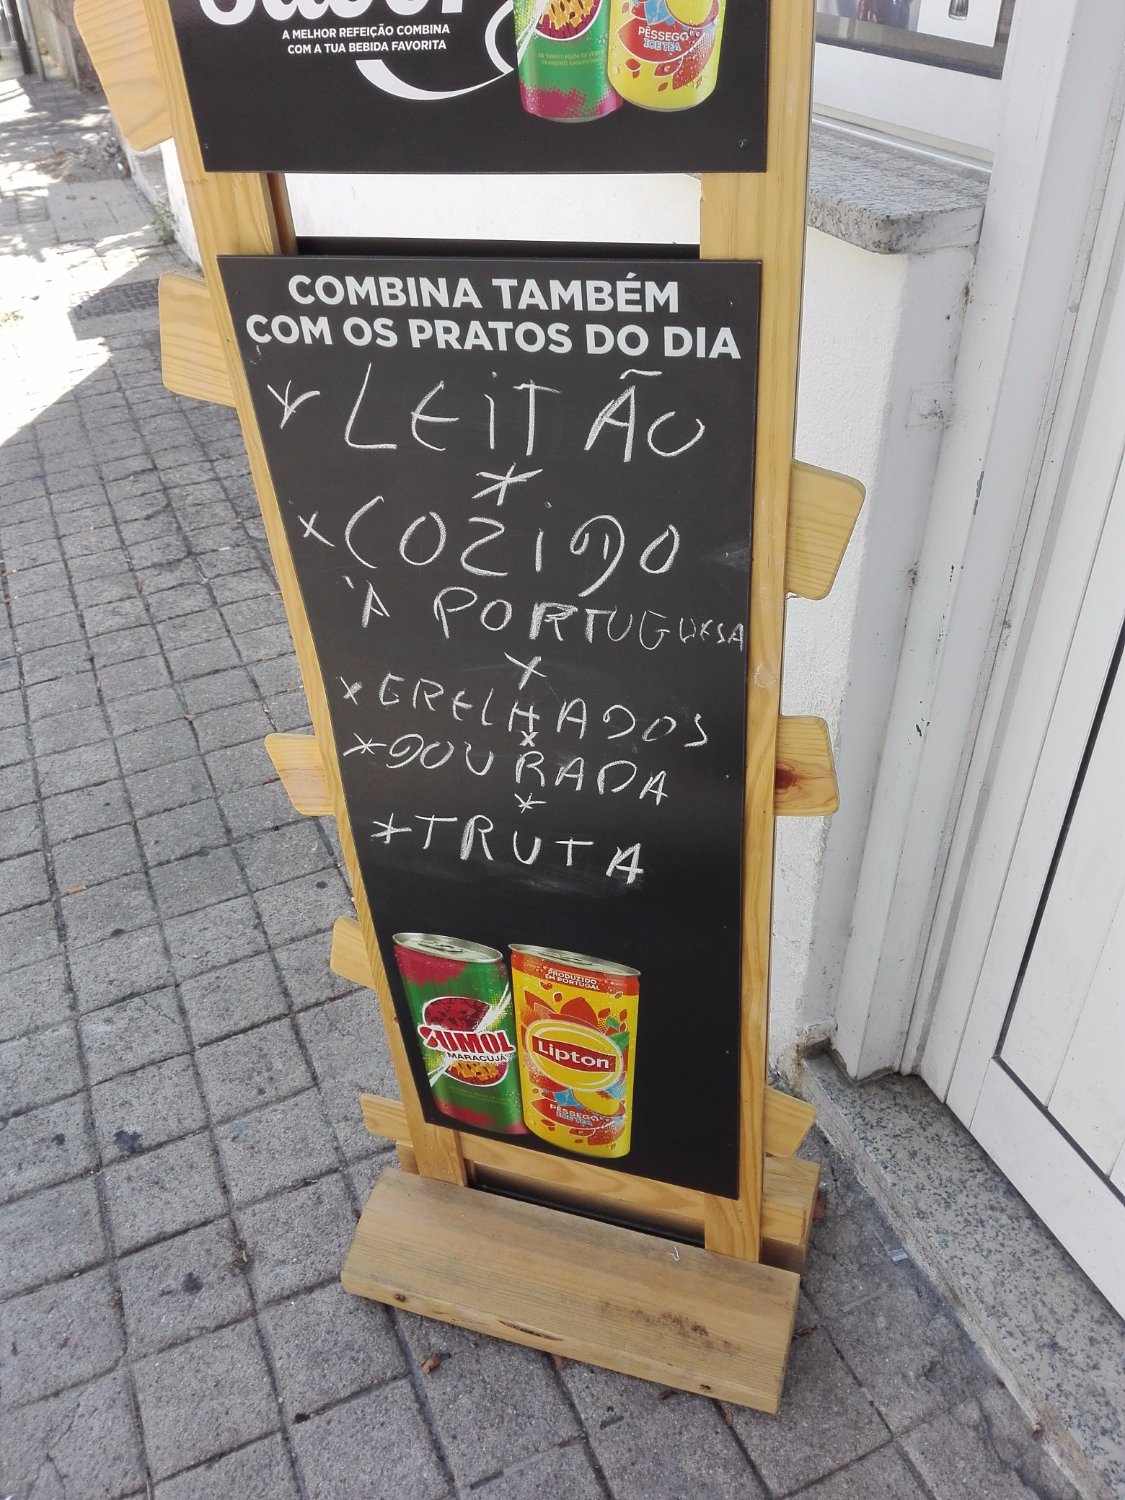 A MELHOR REFEIÇÃO COMBINA
COM A TUA BEBIDA FAVORITA
PÊSSEGO
ICE TEA
COMBINA TAMBÉM
COM OS PRATOS DO DIA
* LEiTÃO
*
x COZiDO
À PORTUGUESA
x
x GRELHADOS
x
* DOURADA
*
* TRUTA
SUMOL
MARACUJÁ
PRODUZIDO
EM PORTUGAL
Lipton
PÊSSEGO
ICE TEA